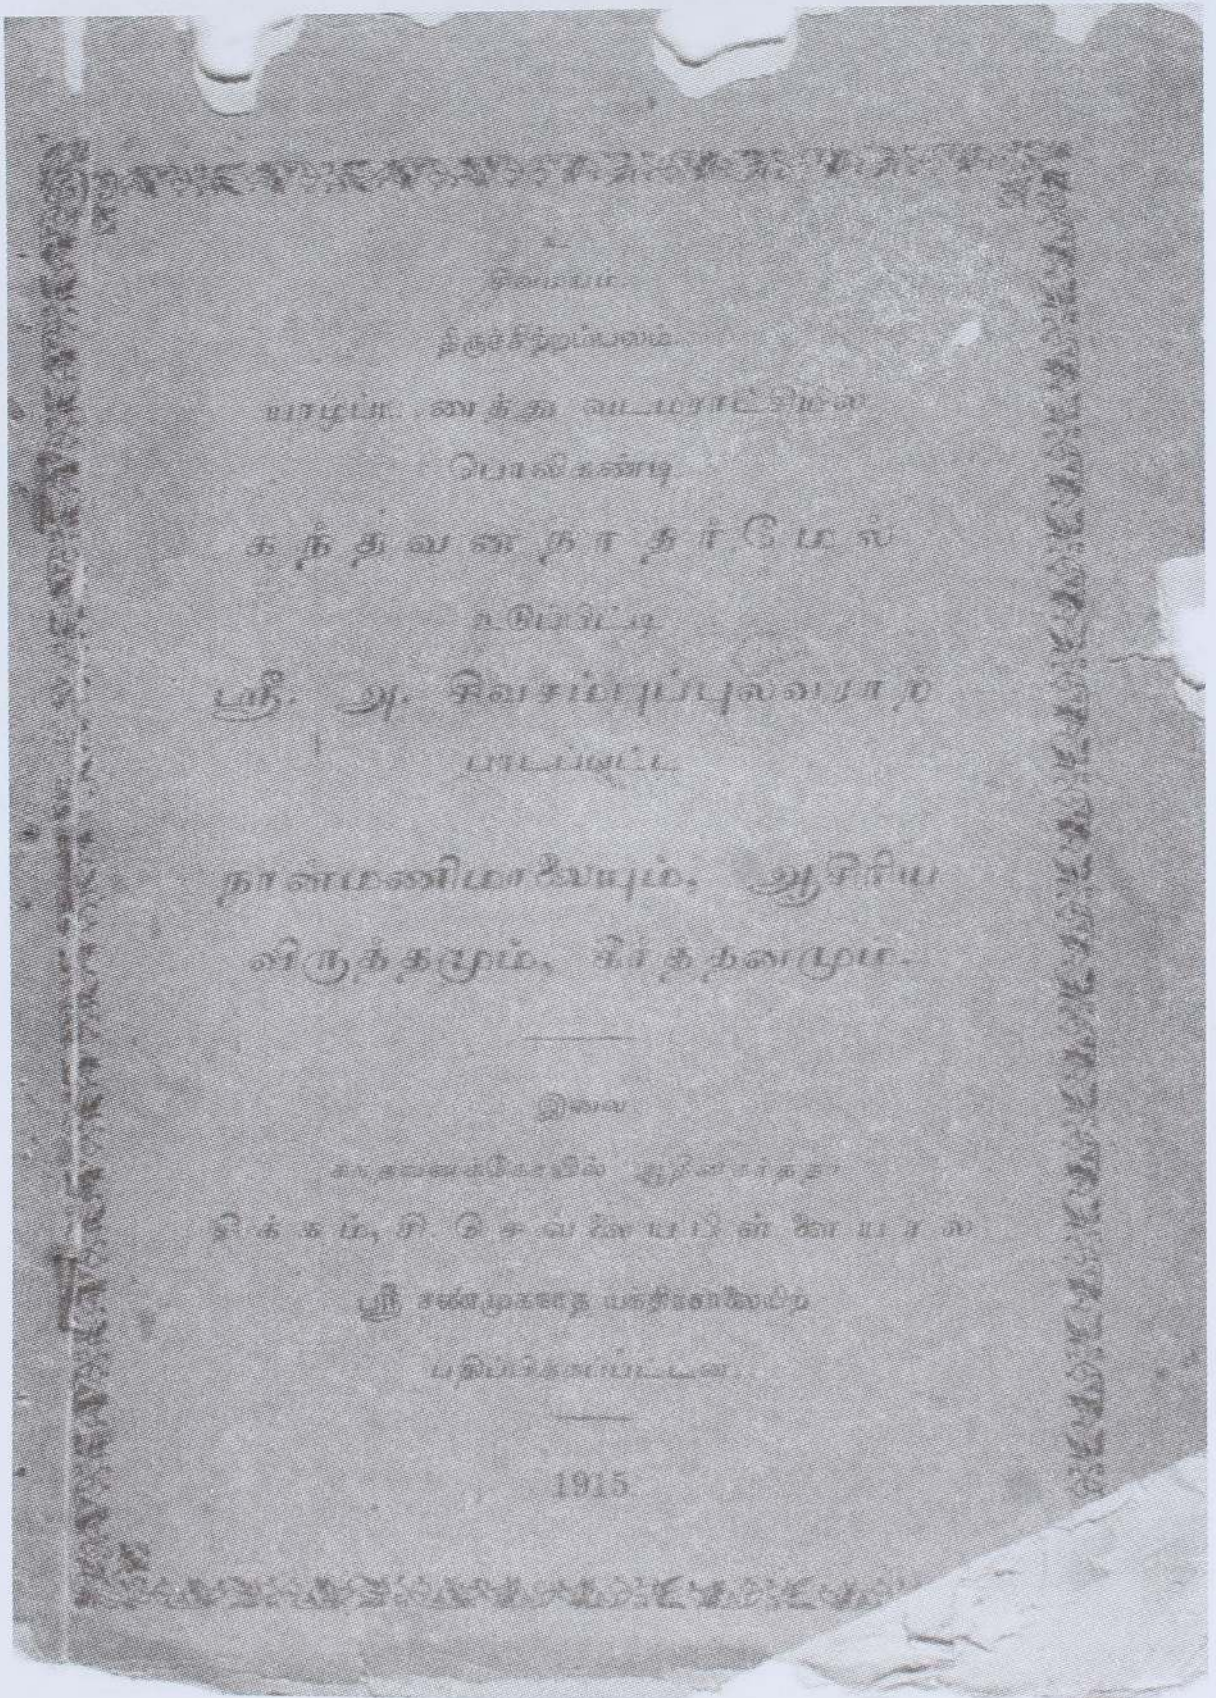 உ
சிவமயம்.
திருச்சிற்றம்பலம்.
யாழ்ப்பாணத்து வடமராட்சியில்
பொலிகண்டி
கந்தவனநாதர்மேல்
உடுப்பிட்டி
ஸ்ரீ. அ. சிவசம்புப்புலவராற்
பாடப்பட்ட
நான்மணிமாலையும், ஆசிரிய
விருத்தமும், கீர்த்தனமும்.
இவை
கந்தவனக்கோவில்
ஸ்ரீ சண்முகநாத யந்திரசாலையிற்
பதிப்பிக்கப்பட்டன.
1915